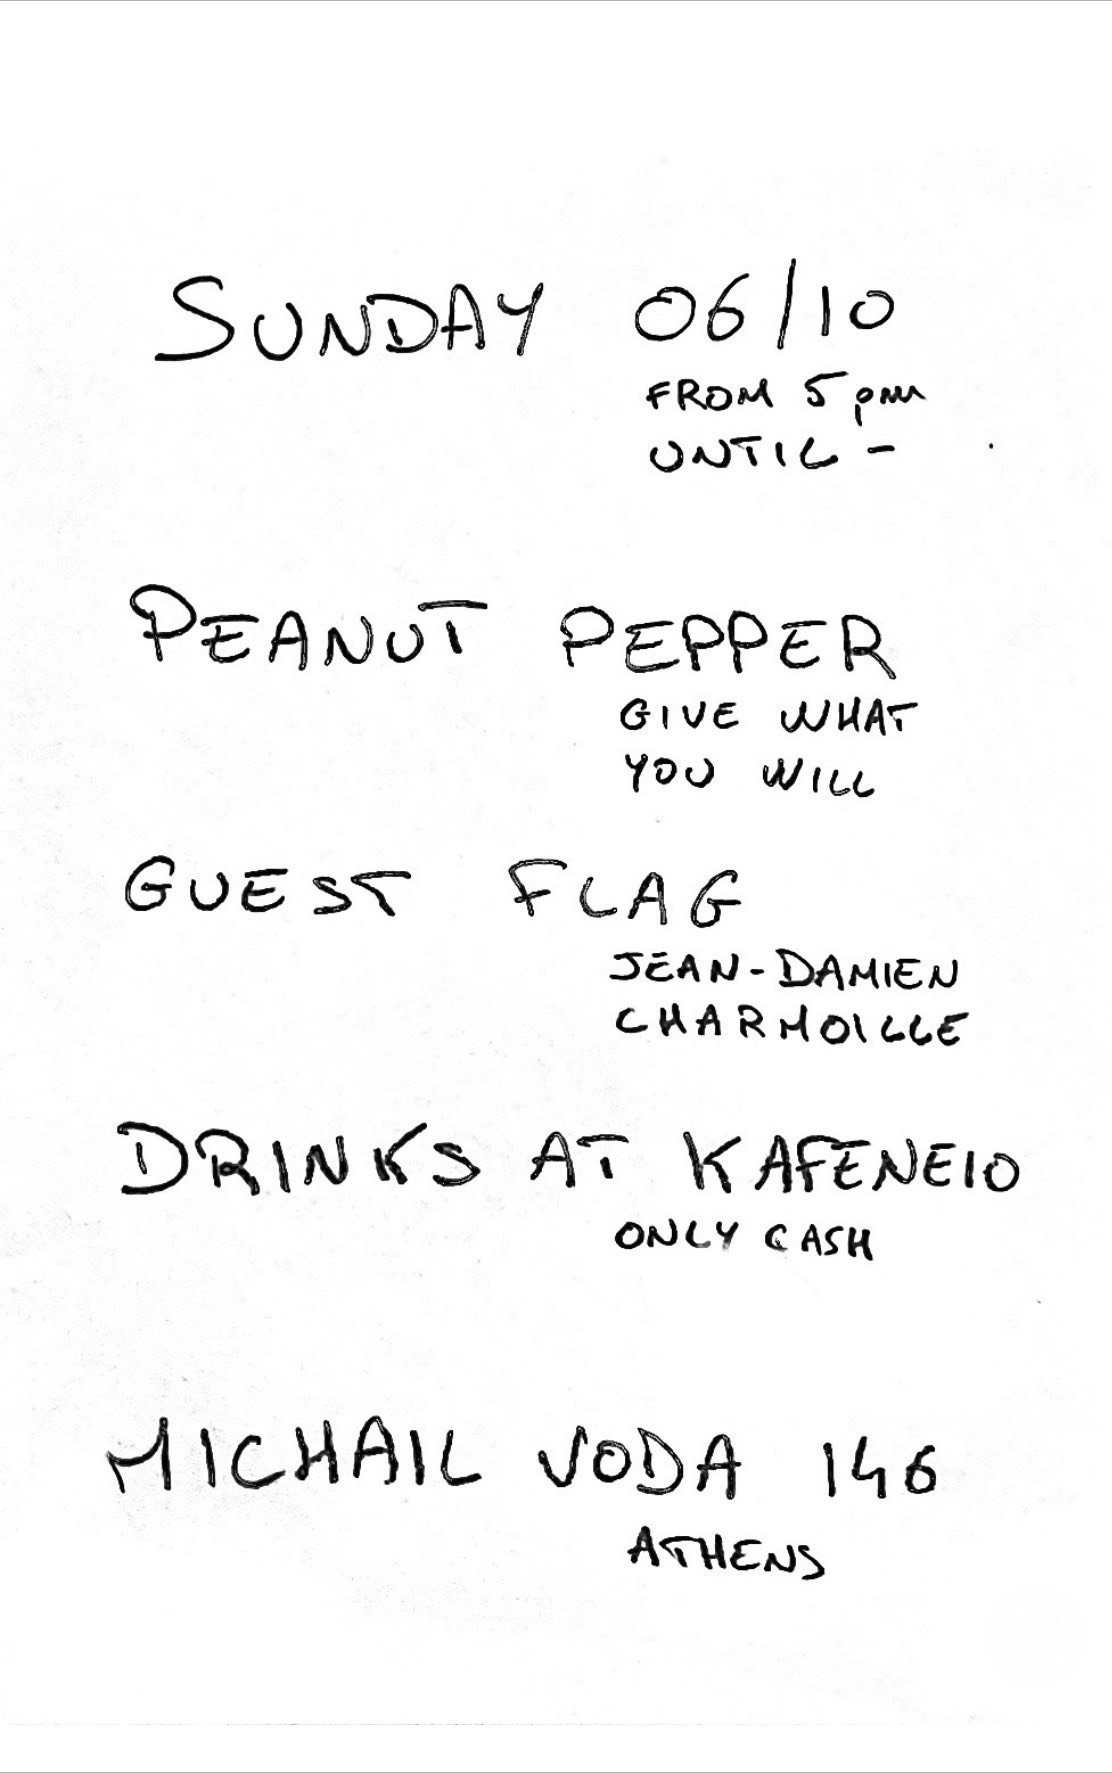 SUNDAY 06/10
FROM 5 pm
UNTIL -
PEANUT PEPPER
GIVE WHAT
YOU WILL
GUEST FLAG
JEAN-DAMIEN
CHARMOILLE
DRINKS AT KAFENEIO
ONLY CASH
MICHAIL VODA 146
ATHENS